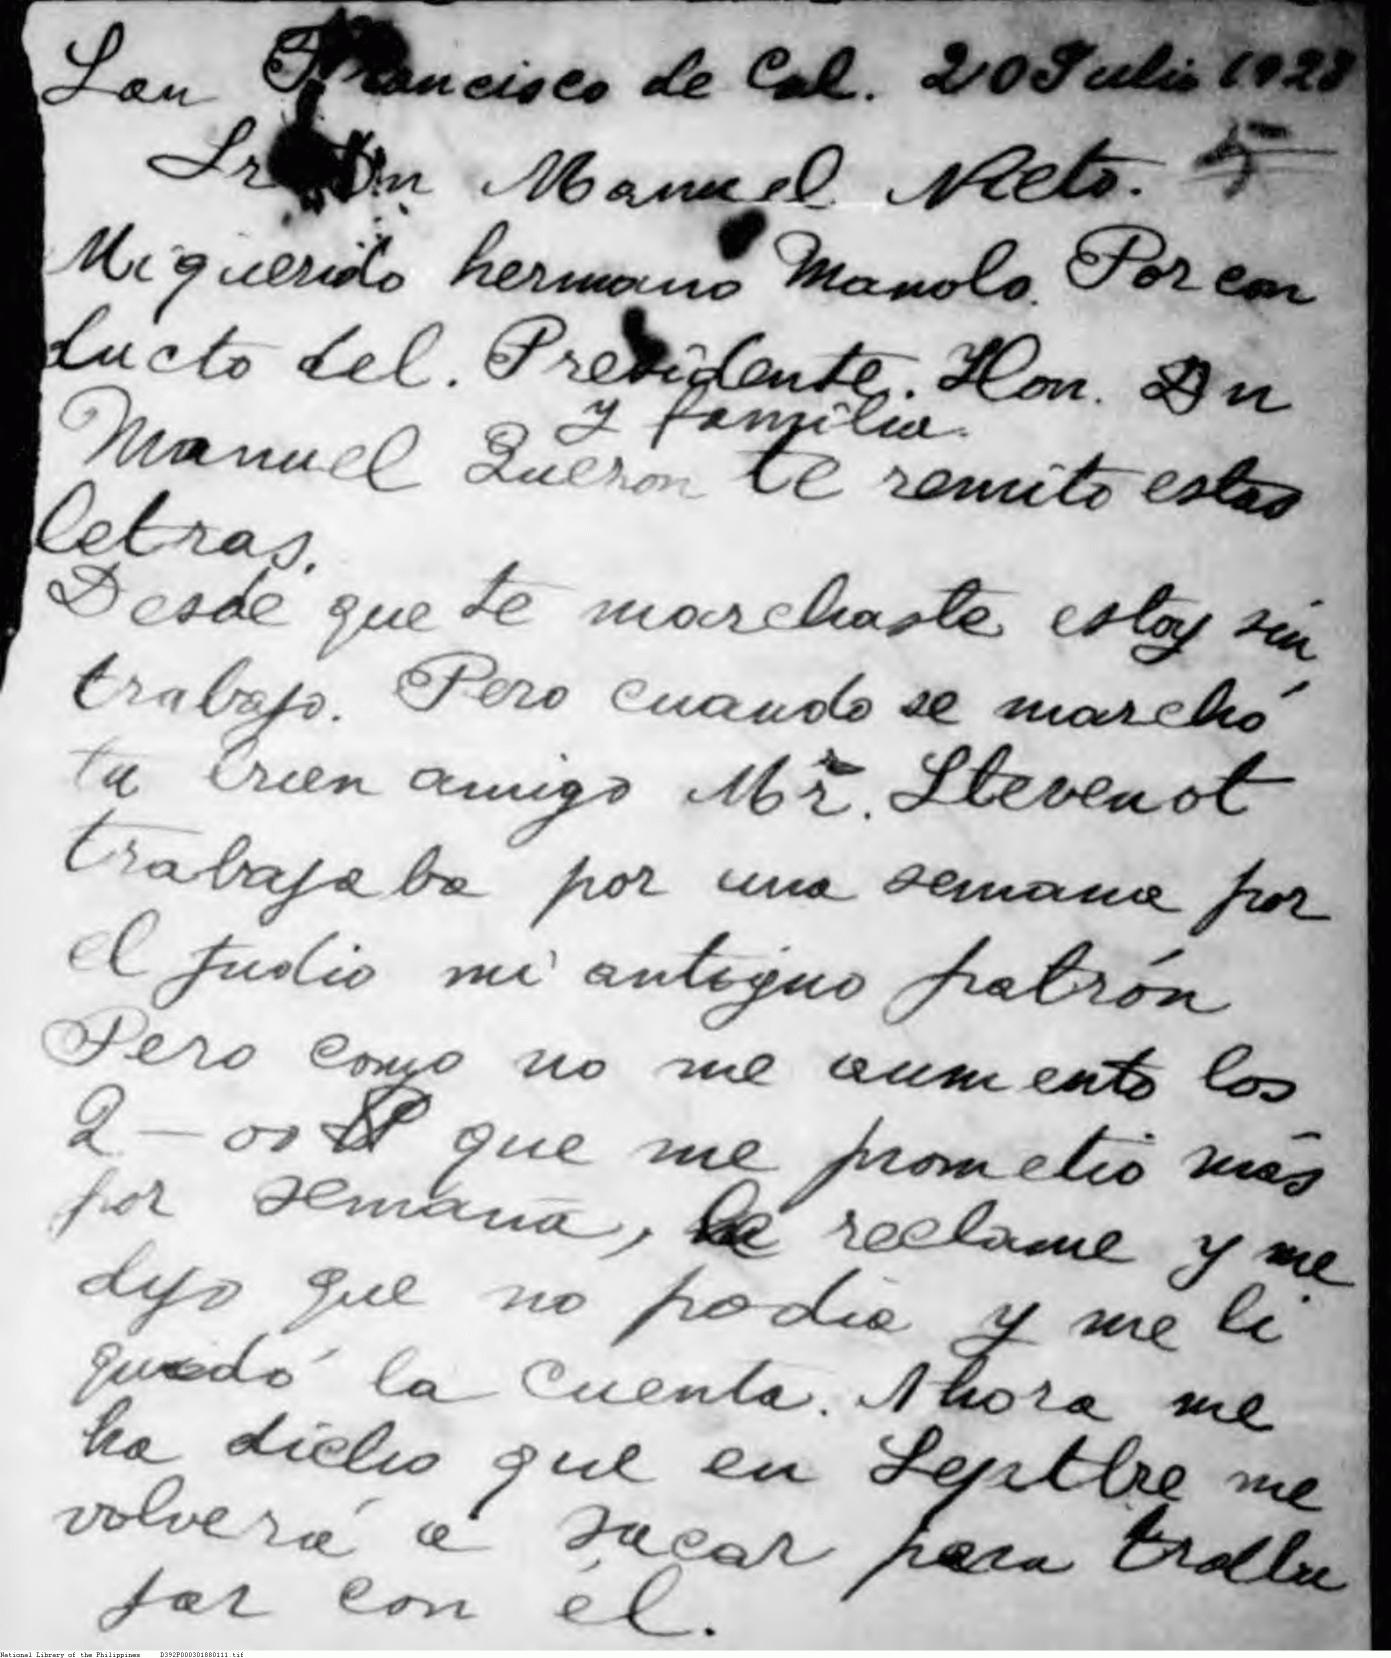 San Francisco de Cal. 20 Julio 1928
Sr Dn Manuel Nieto.
Mi querido hermano Manolo. Por con
ducto del. Presidente. Hon. Dn
y familia.
Manuel Quezon te remito estas
letras.
Desde que te marchaste estoy sin
trabajo. Pero cuando se marchó
tu buen amigo Mr. Stevenot
trabajaba por una semana por
el judio mi antiguo patrón
Pero como no me aumento los
2-00 P que me prometio más
por semana, le reclame y me
dijo que no podia y me li
quedó la cuenta. Ahora me
ha dicho que en Septbre me
volverá a sacar para traba
jar con él.
National Library of the Philippines D392P000301880111.tif